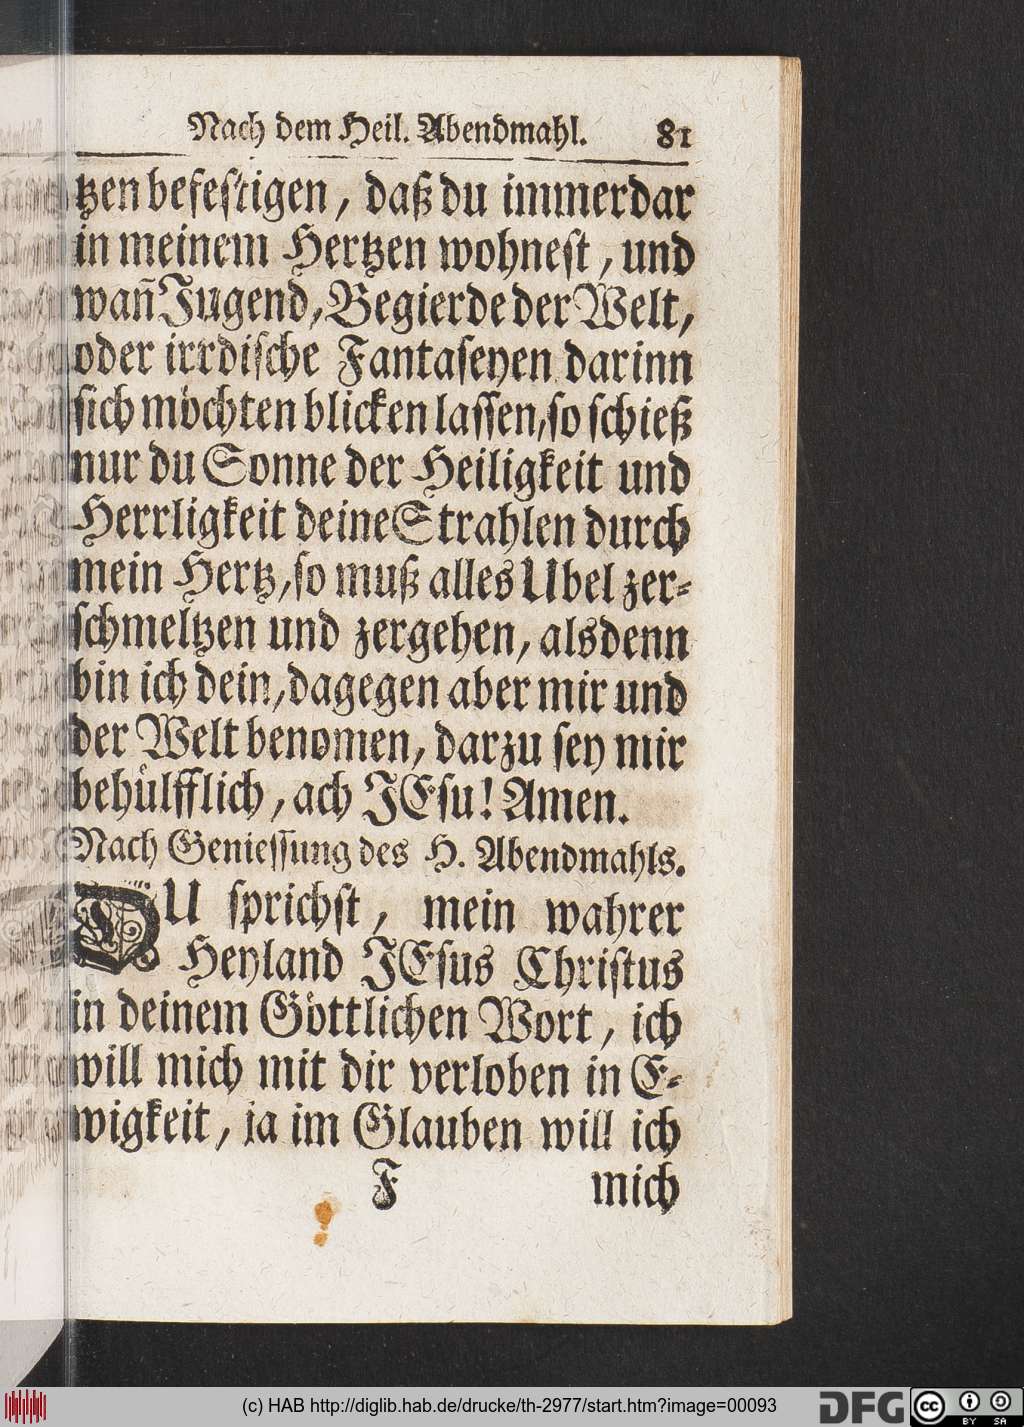 Nach dem Heil. Abendmahl. 81
tzen befestigen, daß du immerdar
in meinem Hertzen wohnest, und
wañ Jugend, Begierde der Welt,
oder irrdische Fantaseyen darinn
sich möchten blicken lassen, so schieß
nur du Sonne der Heiligkeit und
Herrligkeit deine Strahlen durch
mein Hertz, so muß alles Ubel zer-
schmeltzen und zergehen, alsdenn
bin ich dein, dagegen aber mir und
der Welt benomen, darzu sey mir
behülfflich, ach JEsu! Amen.
Nach Geniessung des H. Abendmahls.
DU sprichst, mein wahrer
Heyland JEsus Christus
in deinem Göttlichen Wort, ich
will mich mit dir verloben in E-
wigkeit, ja im Glauben will ich
F mich
(c) HAB http://diglib.hab.de/drucke/th-2977/start.htm?image=00093
DFG
cc BY SA